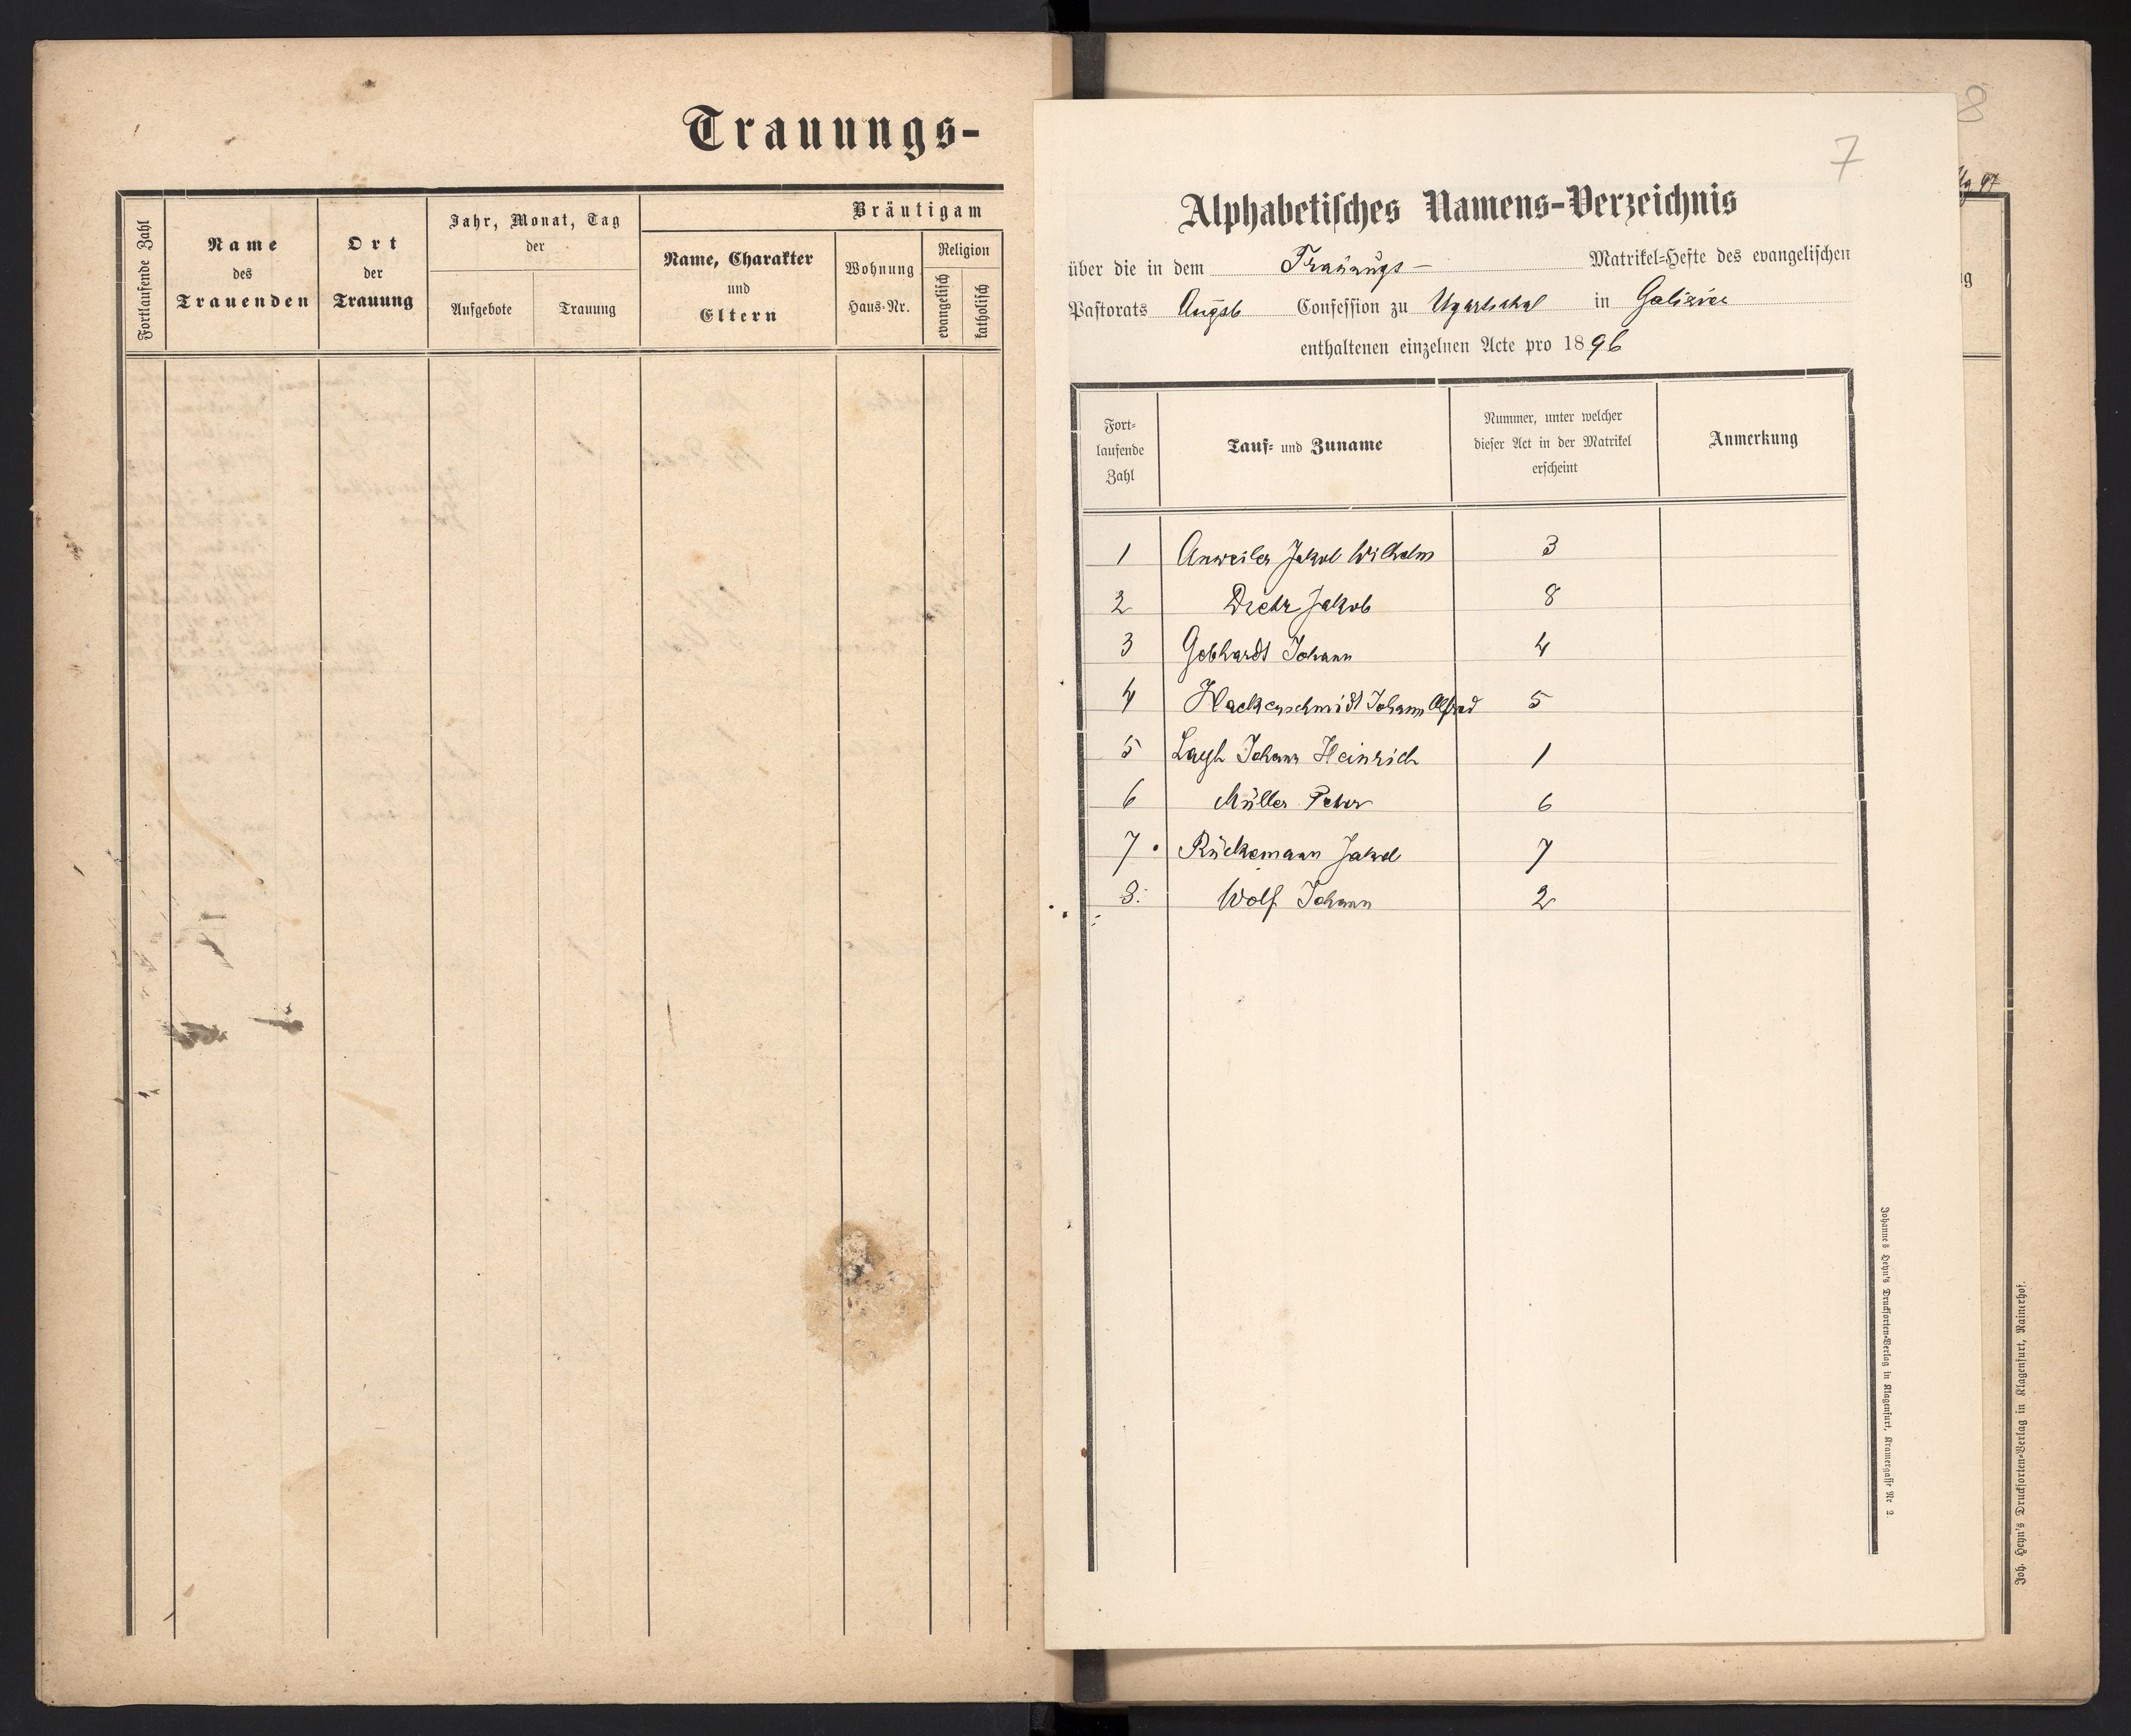 Trauungs-
Fortlaufende Zahl
Name
des
Trauenden
Ort
der
Trauung
Jahr, Monat, Tag
der
Aufgebote
Trauung
Bräutigam
Name, Charakter
und
Eltern
Wohnung
Haus-Nr.
Religion
evangelisch
katholisch
8
7
Alphabetisches Namens-Verzeichnis
über die in dem Trauungs- Matrikel-Hefte des evangelischen
Pastorats Augsb Confession zu Ugartsthal in Galizien
enthaltenen einzelnen Acte pro 1896
Fort-
laufende
Zahl
Tauf- und Zuname
Nummer, unter welcher
dieser Act in der Matrikel
erscheint
Anmerkung
1 Anweiler Jakob Wilhelm 3
2 Jakob 8
3 Gebhardt Johann 4
4 Hackenschmidt Johann Alfred 5
5 Johann Heinrich 1
6 Müller Peter 6
7 Rückemann Jakob 7
8. Wolf Johann 2
Johannes Heyn's Drucksorten-Verlag in Klagenfurt, Kramergasse Nr 2.
97
Joh. Heyn's Drucksorten-Verlag in Klagenfurt, Rainerhof.